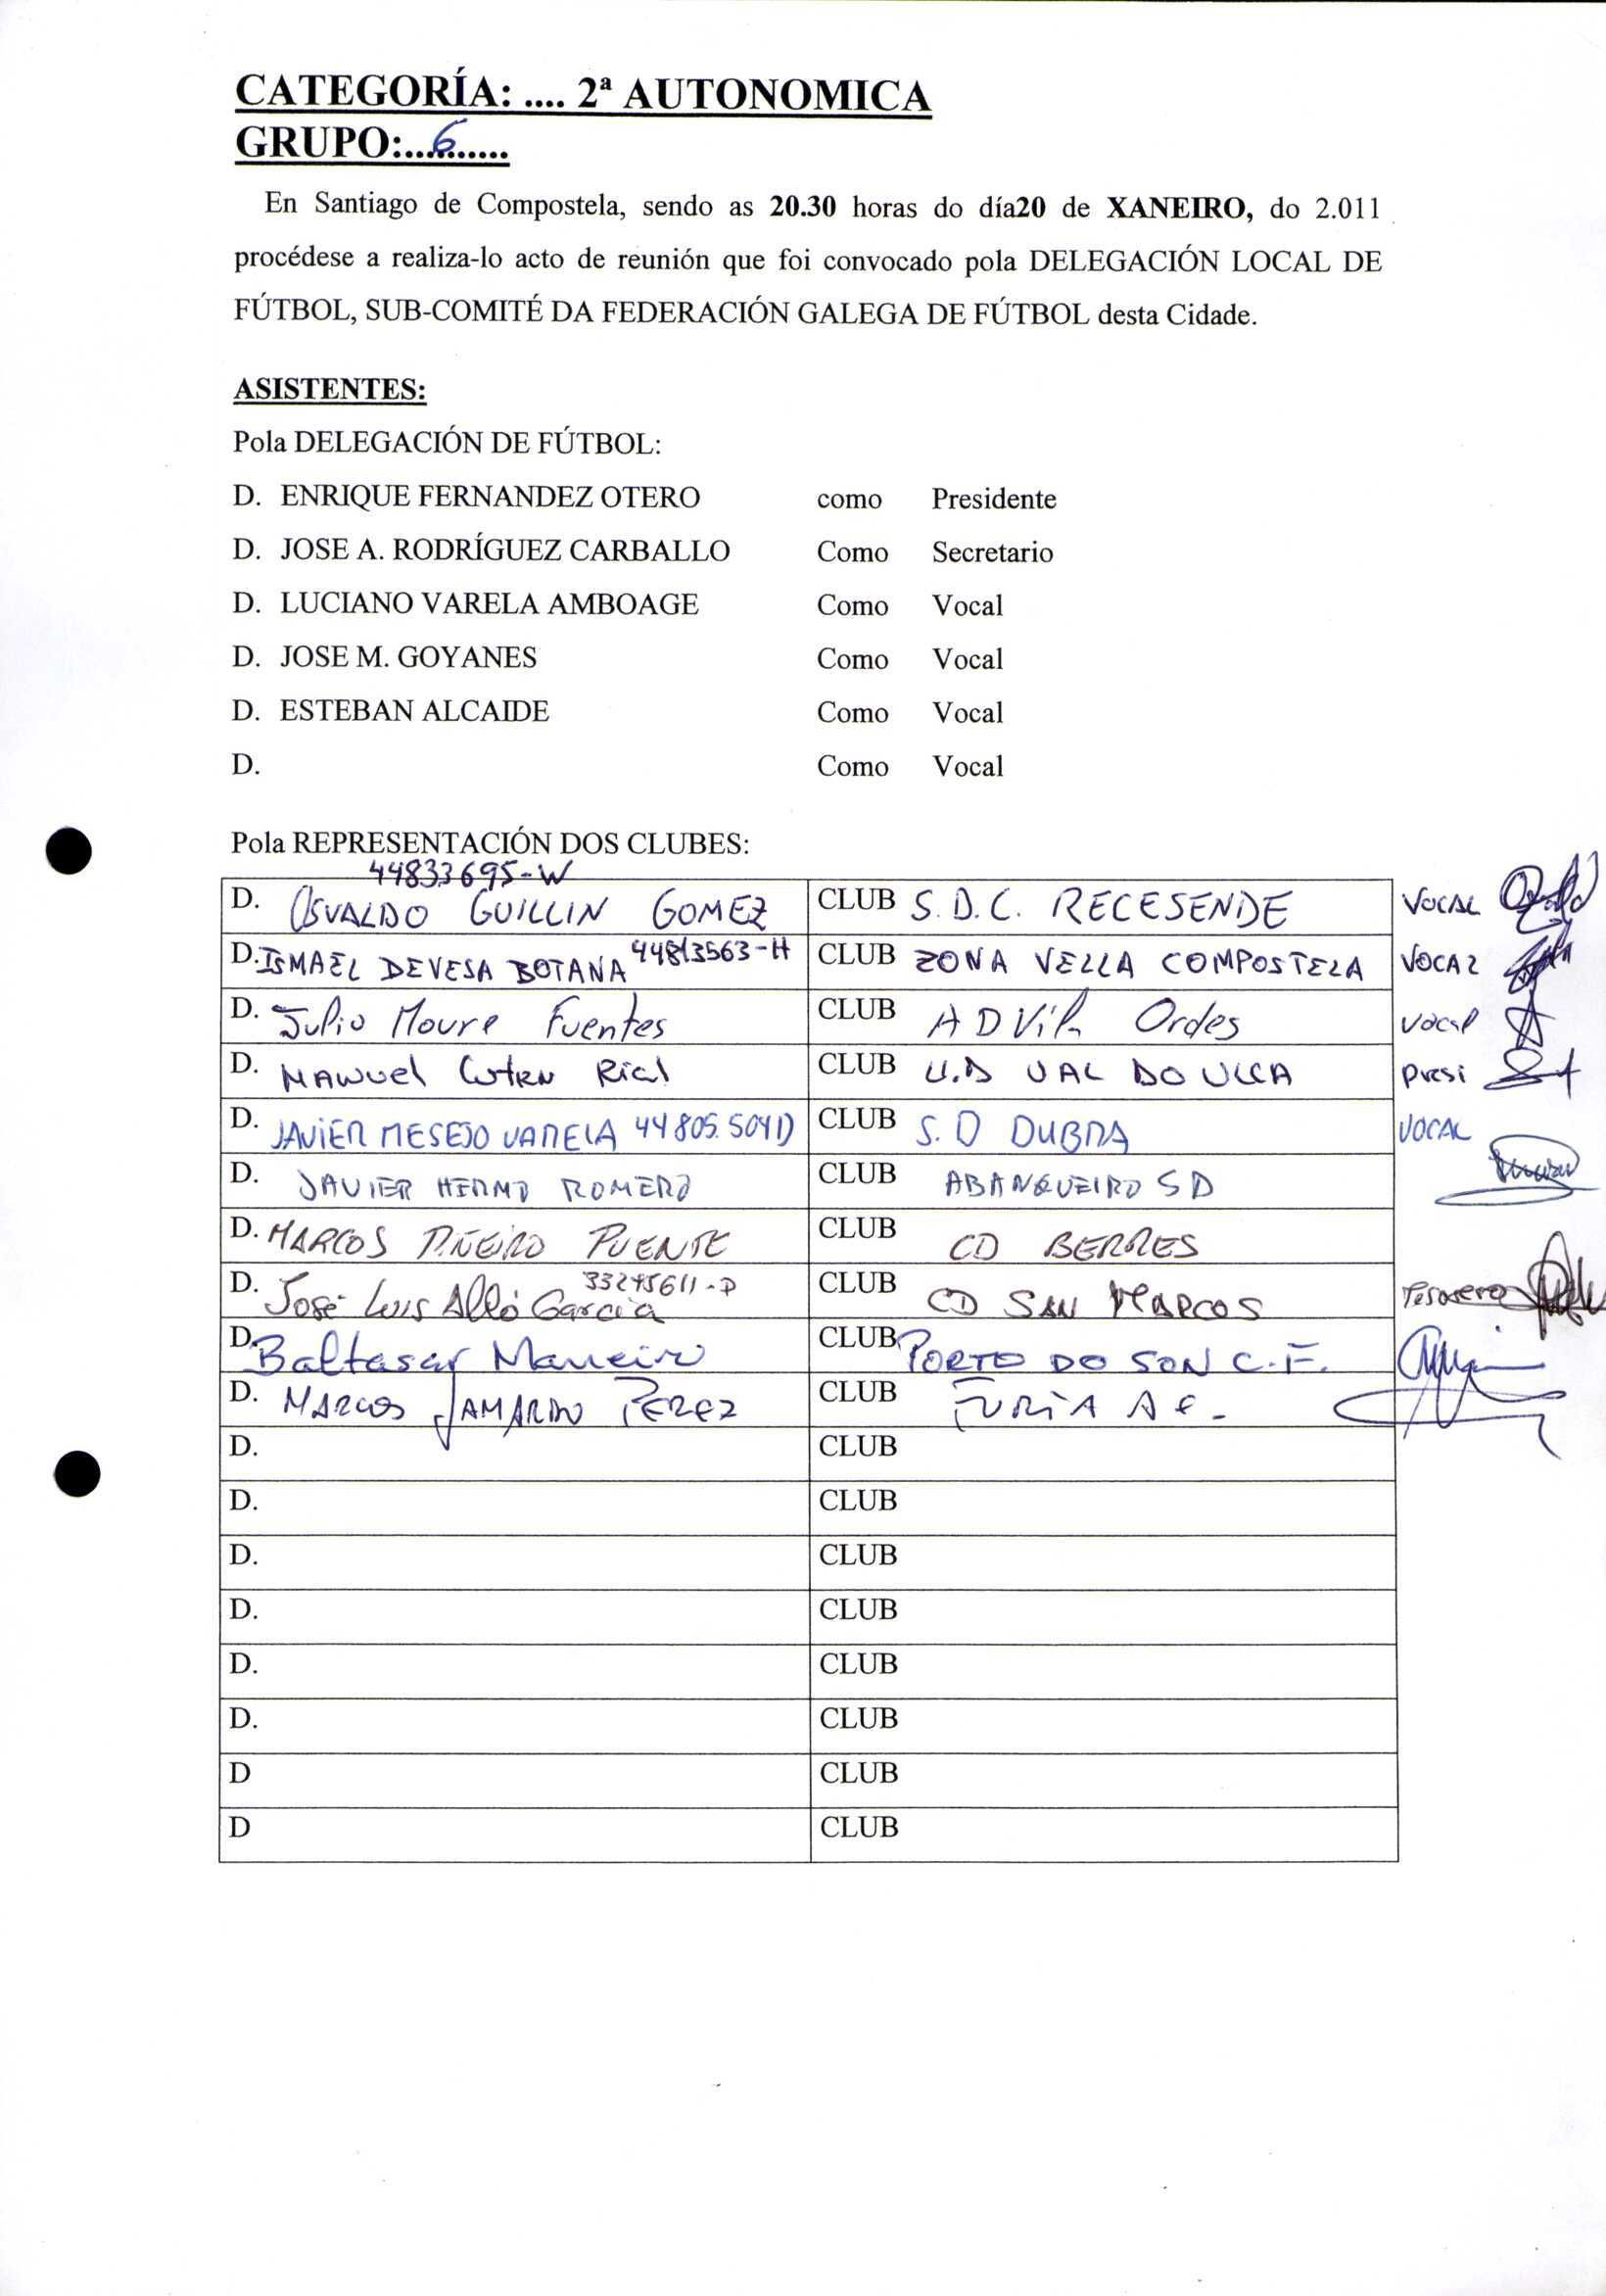 CATEGORÍA: .... 2ª AUTONOMICA
GRUPO:...6......
En Santiago de Compostela, sendo as 20.30 horas do día20 de XANEIRO, do 2.011
procédese a realiza-lo acto de reunión que foi convocado pola DELEGACIÓN LOCAL DE
FÚTBOL, SUB-COMITÉ DA FEDERACIÓN GALEGA DE FÚTBOL desta Cidade.
ASISTENTES:
Pola DELEGACIÓN DE FÚTBOL:
D. ENRIQUE FERNANDEZ OTERO como Presidente
D. JOSE A. RODRÍGUEZ CARBALLO Como Secretario
D. LUCIANO VARELA AMBOAGE Como Vocal
D. JOSE M. GOYANES Como Vocal
D. ESTEBAN ALCAIDE Como Vocal
D. Como Vocal
Pola REPRESENTACIÓN DOS CLUBES:
44833695-W
D. OSVALDO GUILLIN GOMEZ CLUB S.D.C. RECESENDE VOCAL
D. ISMAEL DEVESA BOTANA 44813563-H CLUB ZONA VELLA COMPOSTELA VOCAL
D. Julio Moure Fuentes CLUB AD Vila Ordes Vocal
D. Manuel Rial CLUB U.D VAL DO ULLA Presi
D. JAVIER MESEJO VARELA 44805.504D CLUB S.D DUBRA VOCAL
D. JAVIER HERMO ROMERO CLUB ABANQUEIRO SD
D. MARCOS PIÑEIRO PUENTE CLUB CD BERRES
D. José Luis Alló García 33245611-P CLUB CD SAN MARCOS Tesorero
D. Baltasar Maneiro CLUB PORTO DO SON C.F.
D. MARCOS JAMARDO PEREZ CLUB FURIA A E.
D. CLUB
D. CLUB
D. CLUB
D. CLUB
D. CLUB
D. CLUB
D CLUB
D CLUB